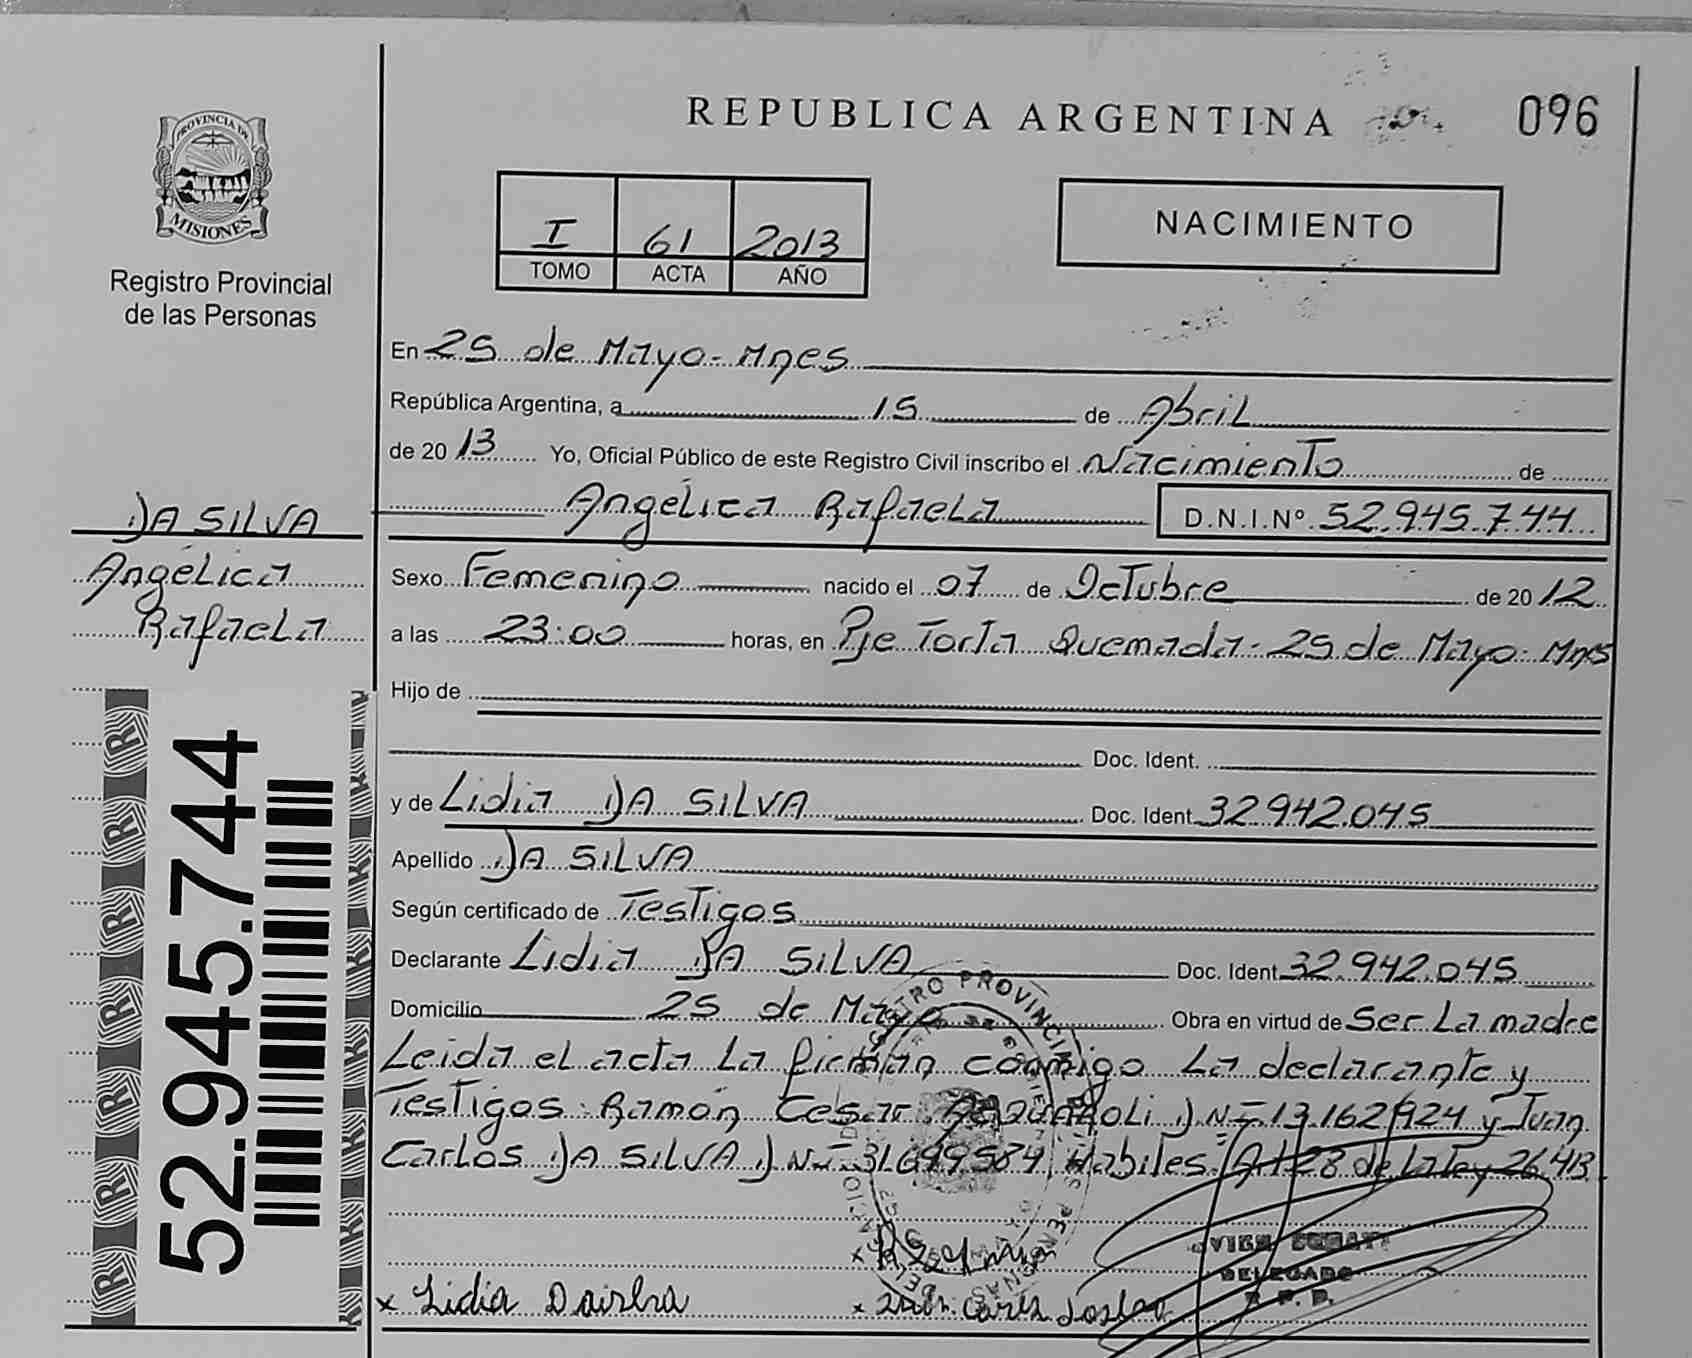 REPUBLICA ARGENTINA
096
PROVINCIA DE
MISIONES
Registro Provincial
de las Personas
I 61 2013
TOMO ACTA AÑO
NACIMIENTO
En 25 de Mayo-Mnes
República Argentina, a 15 de Abril
de 2013 Yo, Oficial Público de este Registro Civil inscribo el Nacimiento de
Angélica Rafaela D.N.I.Nº 52.945.744
DA SILVA
Angélica
Rafaela
Sexo Femenino nacido el 07 de Octubre de 2012
a las 23:00 horas, en Pje Torta Quemada-25 de Mayo-Mnes
Hijo de
Doc. Ident.
y de Lidia DA SILVA Doc. Ident. 32.942.045
Apellido DA SILVA
Según certificado de Testigos
Declarante Lidia DA SILVA Doc. Ident. 32.942.045
Domicilio 25 de Mayo Obra en virtud de Ser La madre
Leida el acta La firman conmigo La declarante y
Testigos: Ramón Cesar DNI 13.162.924 y Juan
Carlos DA SILVA DNI 31.699.584 Habiles. Art 28 de La Ley
52.945.744
DELEGADO
R. P. P.
x Lidia
x
x